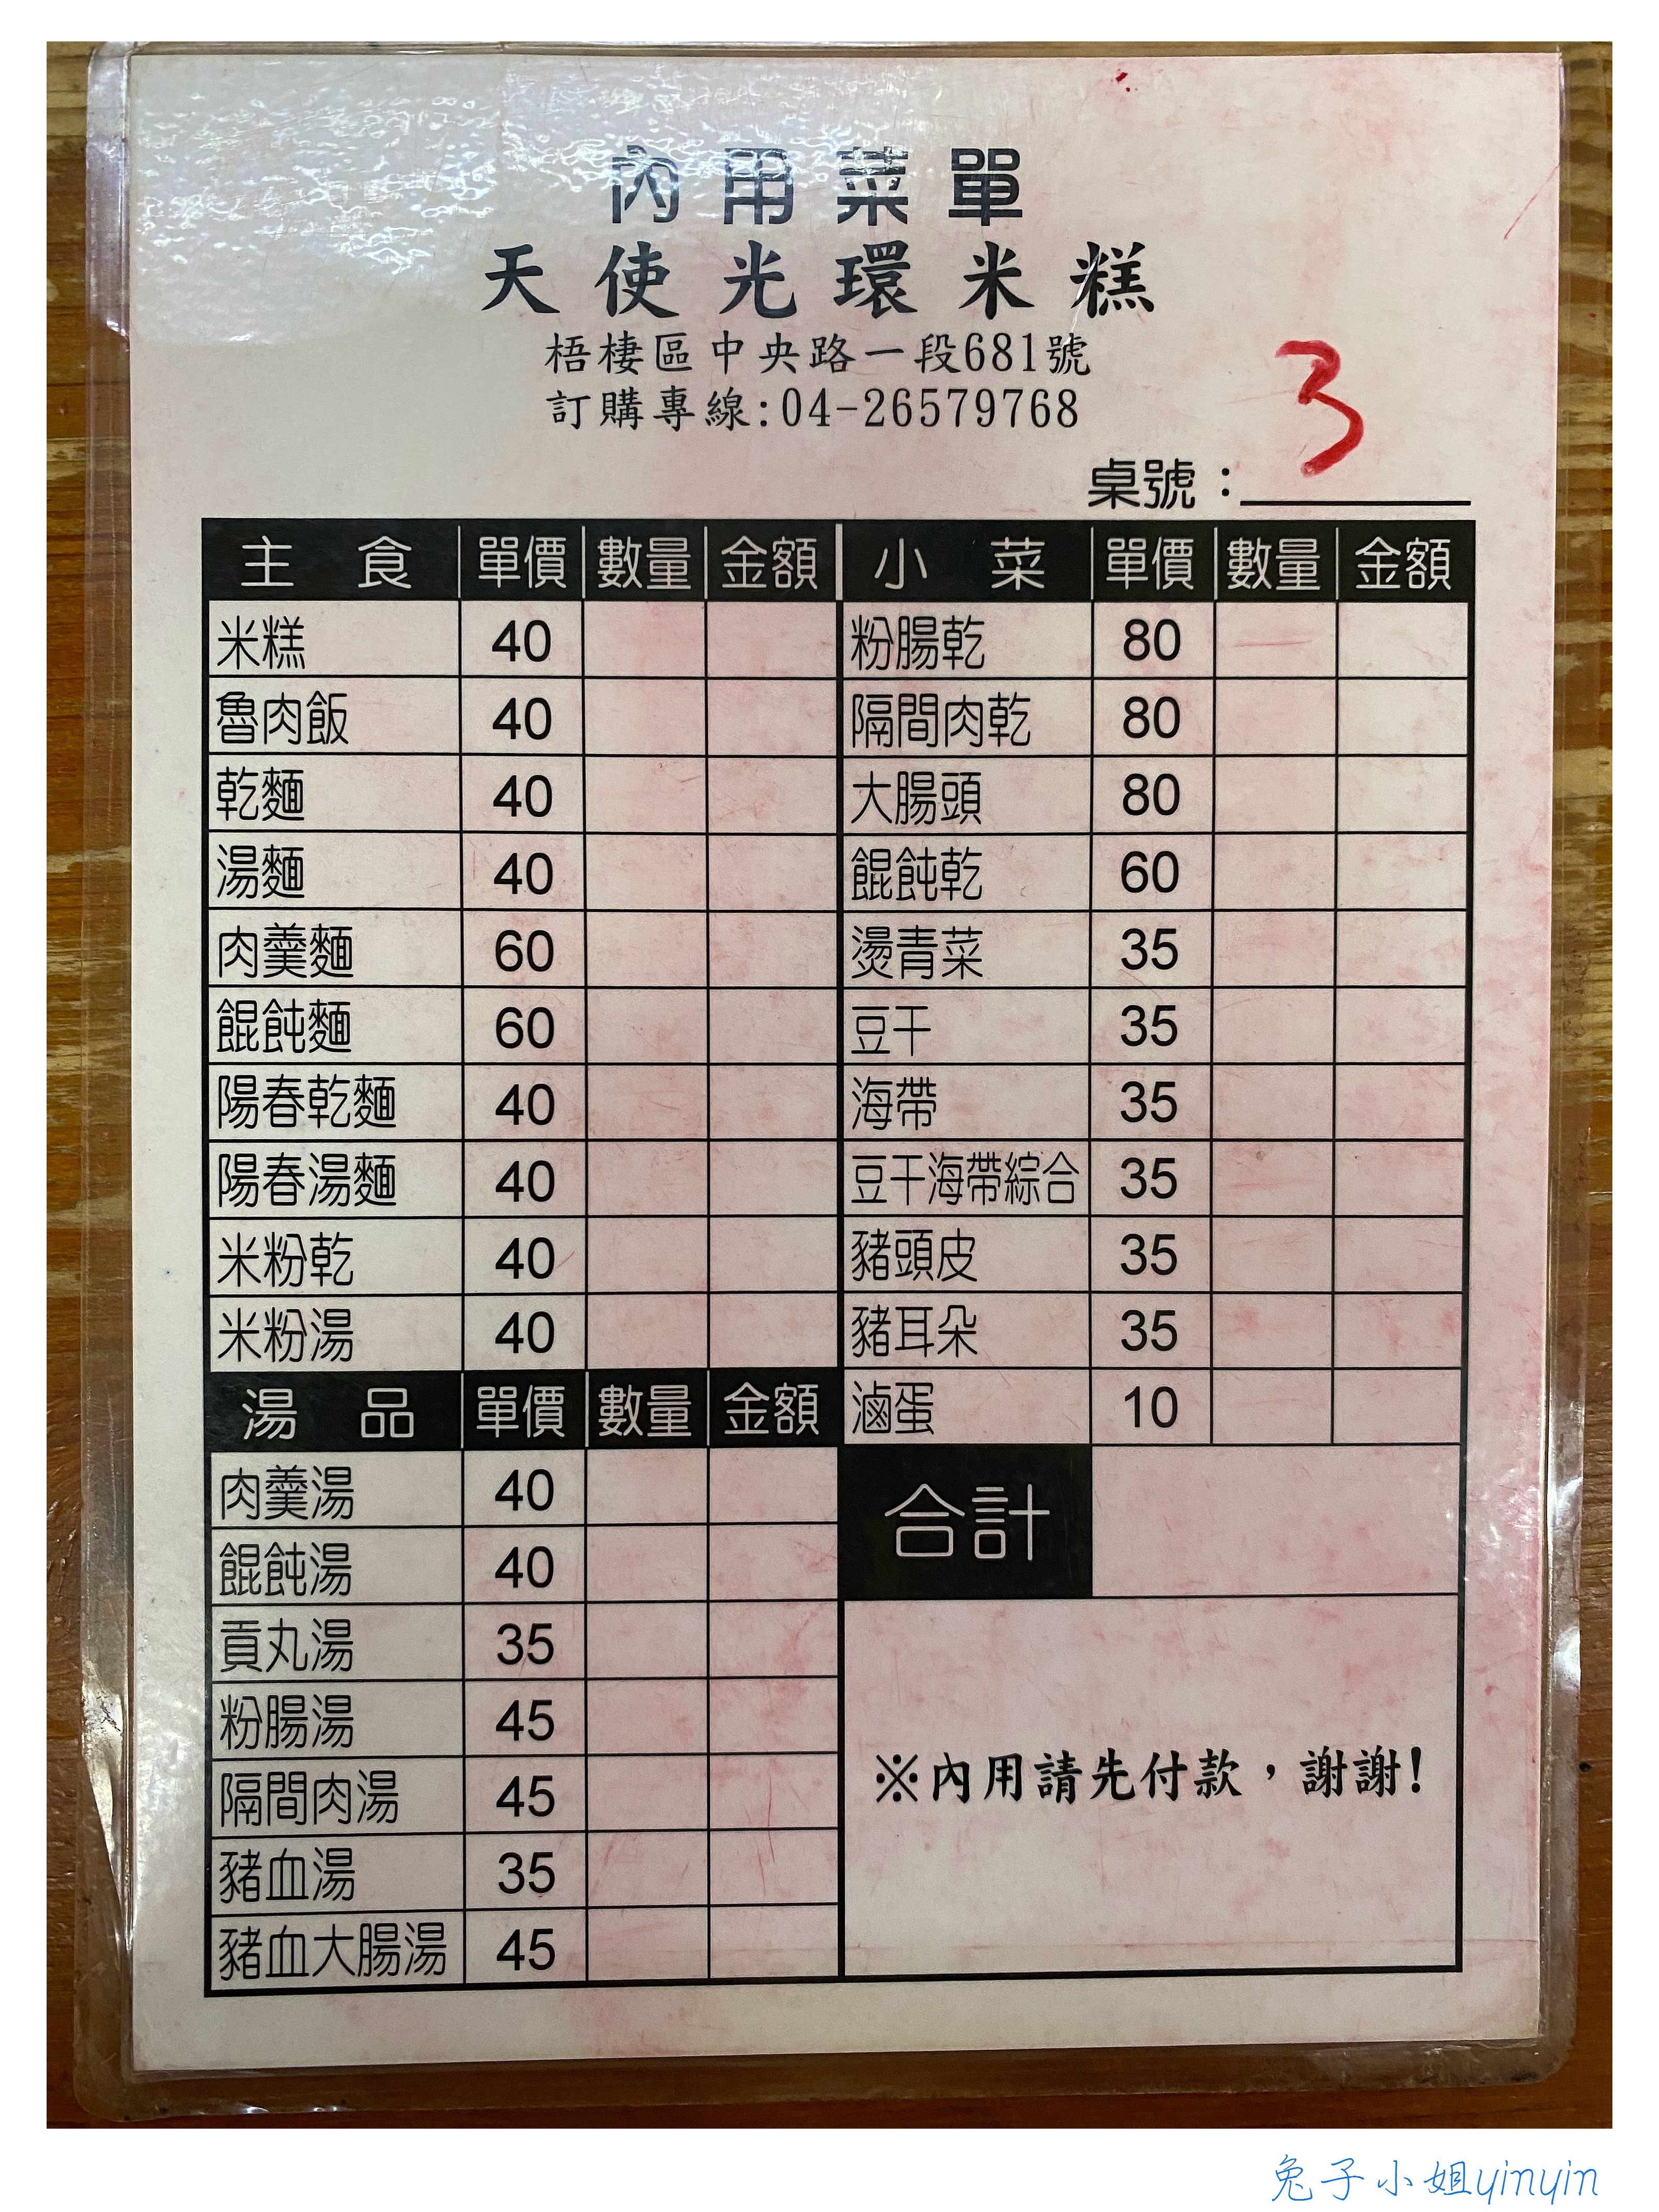 內用菜單
天使光環米糕
梧棲區中央路一段681號
訂購專線:04-26579768
3
桌號：
主食 單價 數量 金額 小菜 單價 數量 金額
米糕 40 粉腸乾 80
魯肉飯 40 隔間肉乾 80
乾麵 40 大腸頭 80
湯麵 40 餛飩乾 60
肉羹麵 60 燙青菜 35
餛飩麵 60 豆干 35
陽春乾麵 40 海帶 35
陽春湯麵 40 豆干海帶綜合 35
米粉乾 40 豬頭皮 35
米粉湯 40 豬耳朵 35
湯品 單價 數量 金額 滷蛋 10
肉羹湯 40 合計
餛飩湯 40
貢丸湯 35
粉腸湯 45
隔間肉湯 45 ※內用請先付款，謝謝!
豬血湯 35
豬血大腸湯 45
兔子小姐yinyin